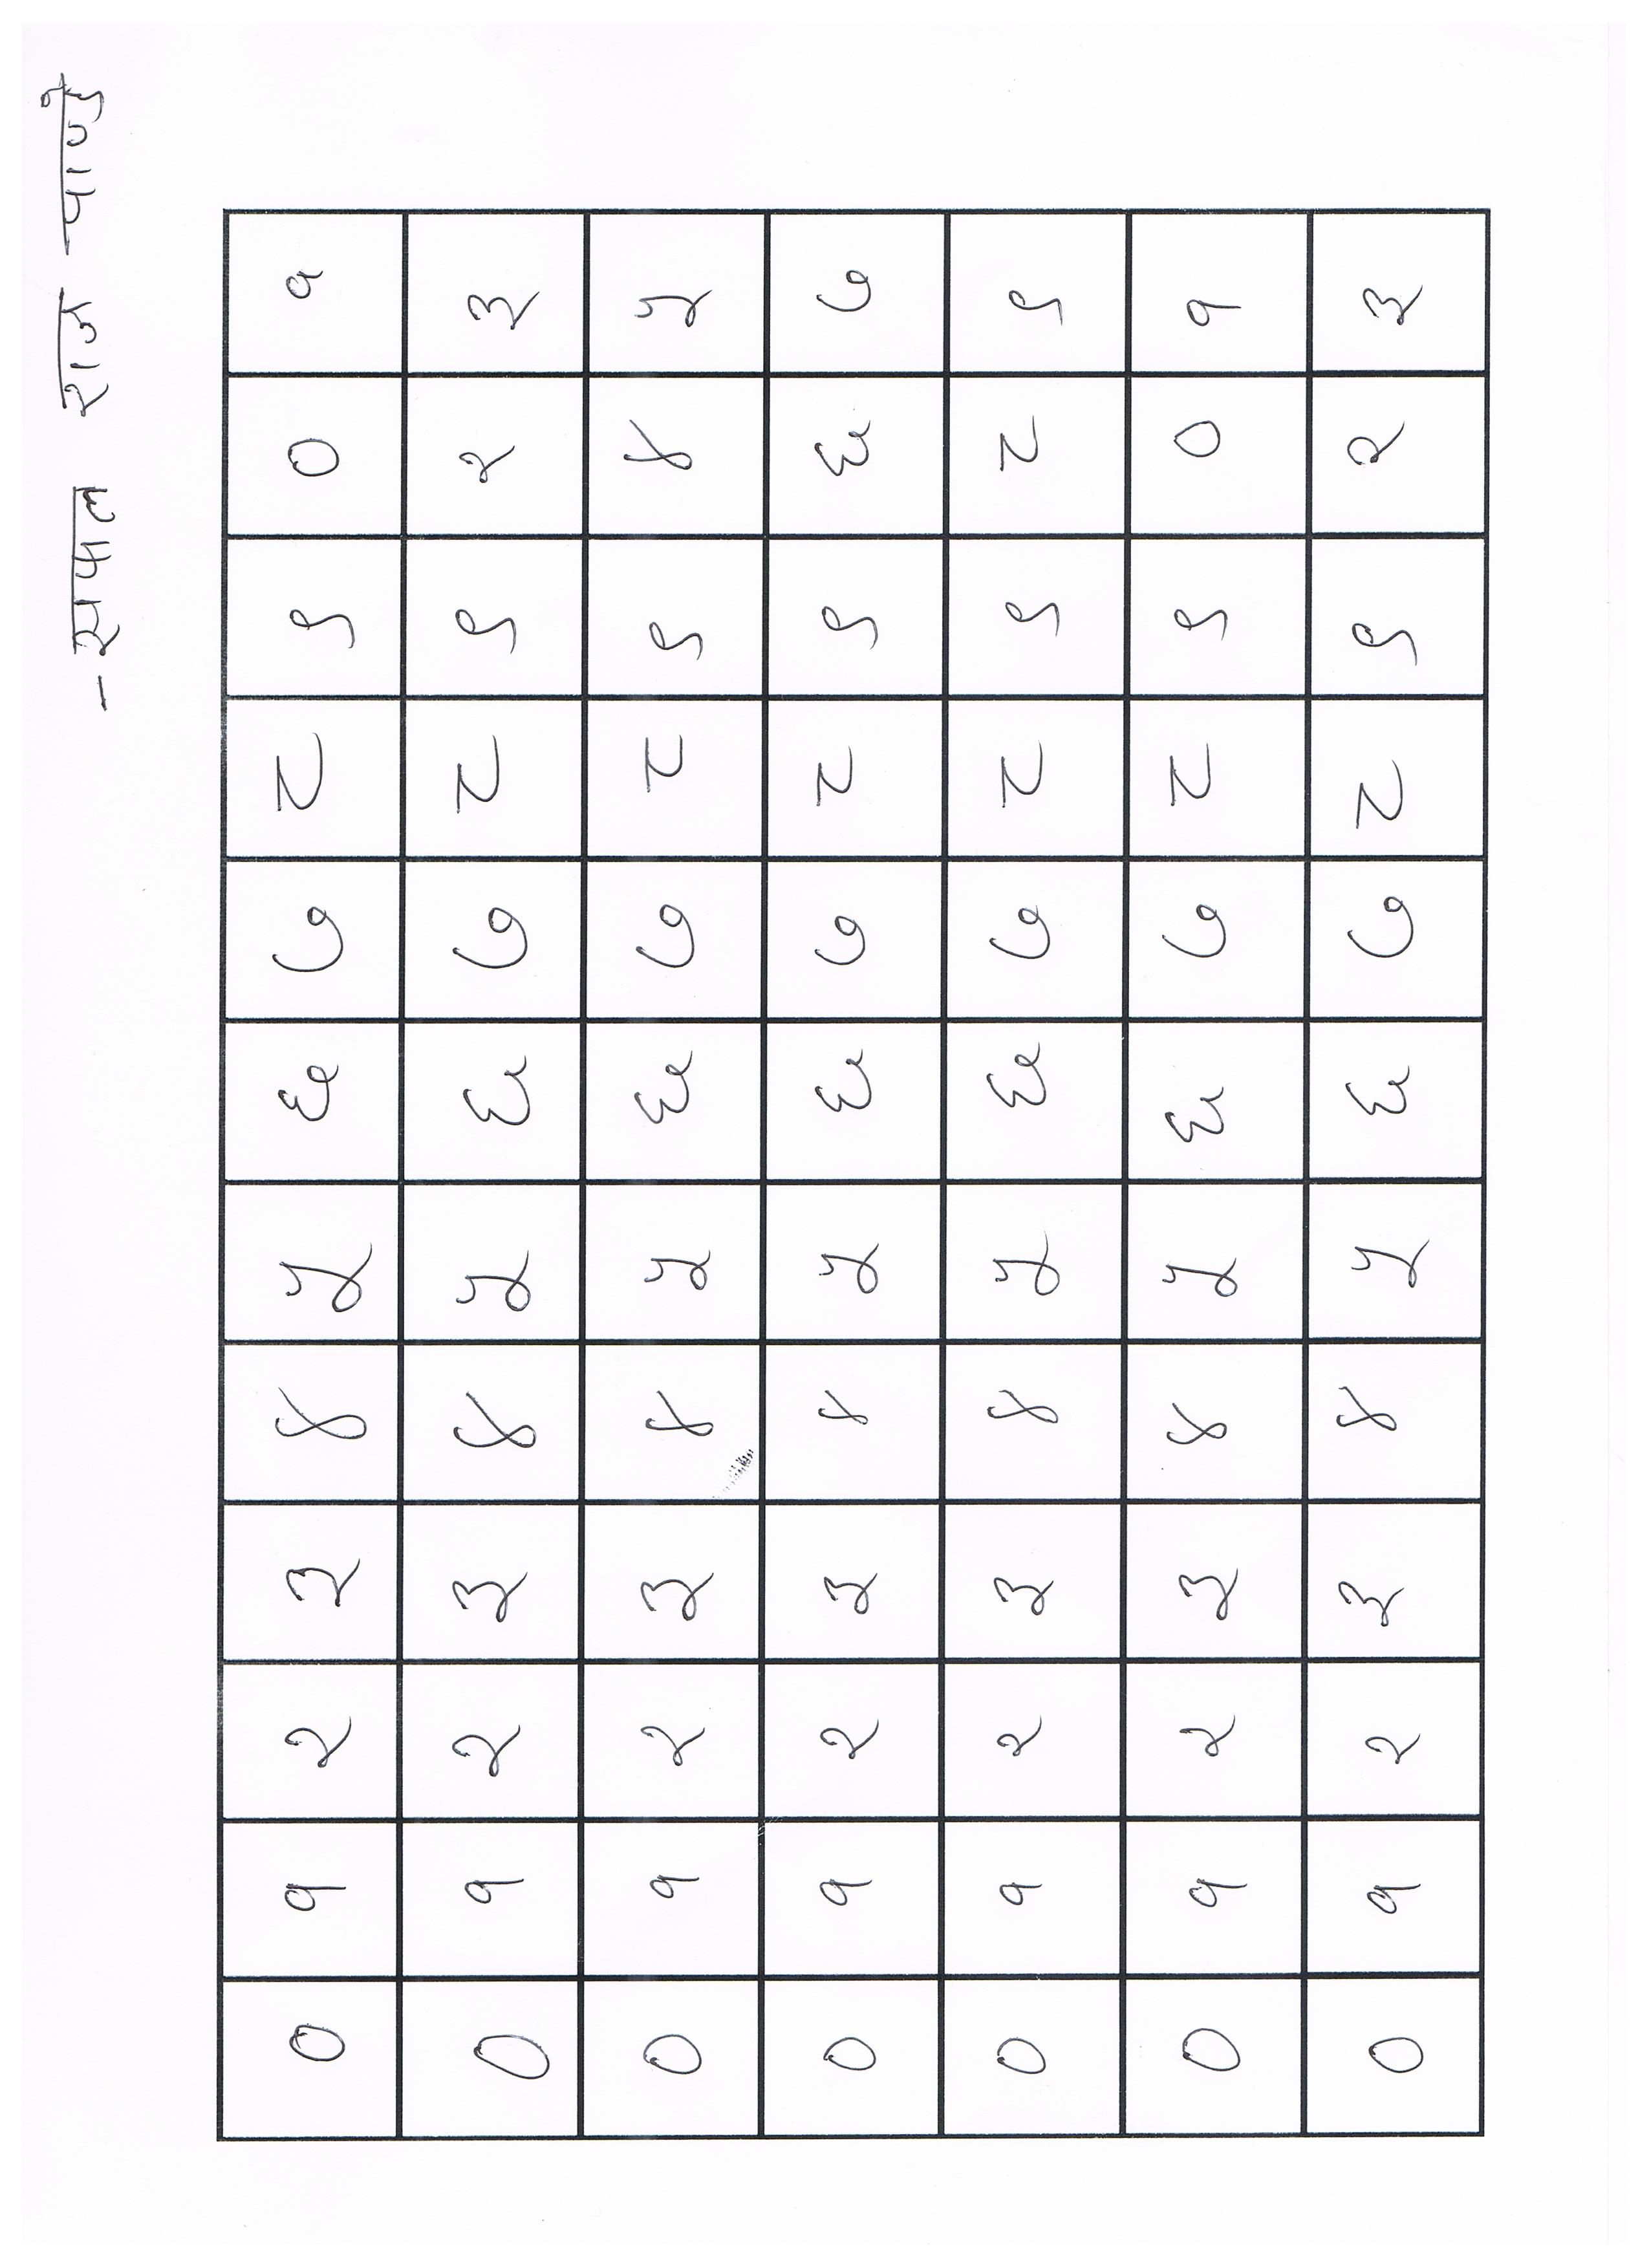 - सफल राज पाण्डे
० १ २ ३ ४ ५ ६ ७ ८ ९ ० १
० १ २ ३ ४ ५ ६ ७ ८ ९ २ ३
० १ २ ३ ४ ५ ६ ७ ८ ९ ४ ५
० १ २ ३ ४ ५ ६ ७ ८ ९ ६ ७
० १ २ ३ ४ ५ ६ ७ ८ ९ ८ ९
० १ २ ३ ४ ५ ६ ७ ८ ९ ० १
० १ २ ३ ४ ५ ६ ७ ८ ९ २ ३